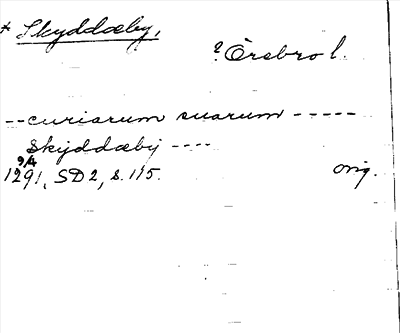 * Skyddæby,
? Örebro l.
-- curiarum suarum -----
Skyddæby ----
9/4
1291, SD 2, s. 115. orig.